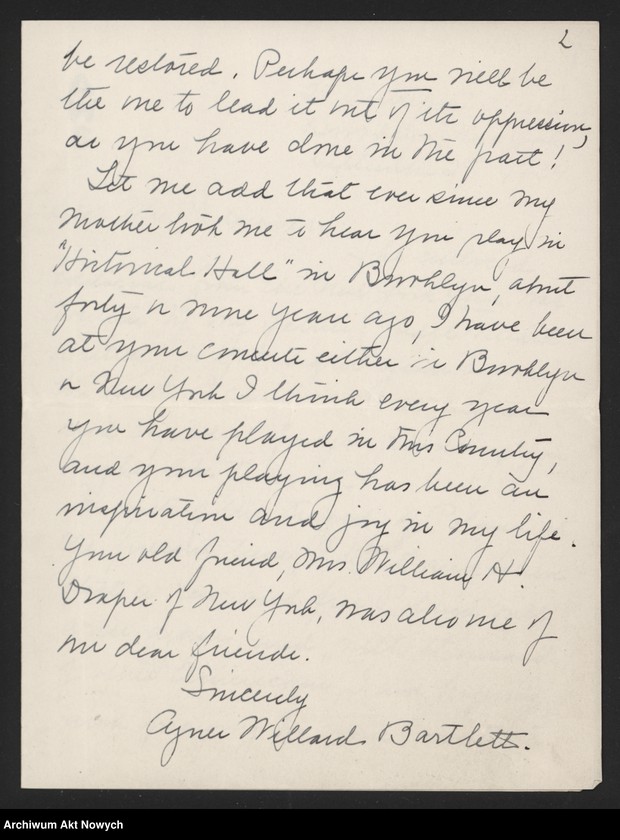 2
be restored. Perhaps you will be
the one to lead it out of its oppression,
as you have done in the past!
Let me add that ever since my
mother took me to hear you play in
"Historical Hall" in Brooklyn, about
forty or more years ago, I have been
at your concerts either in Brooklyn
or New York I think every year
you have played in this Country,
and your playing has been an
inspiration and joy in my life.
Your old friend, Mrs. William H.
Draper of New York, was also one of
our dear friends.
Sincerely
Agnes Willard Bartlett.
Archiwum Akt Nowych